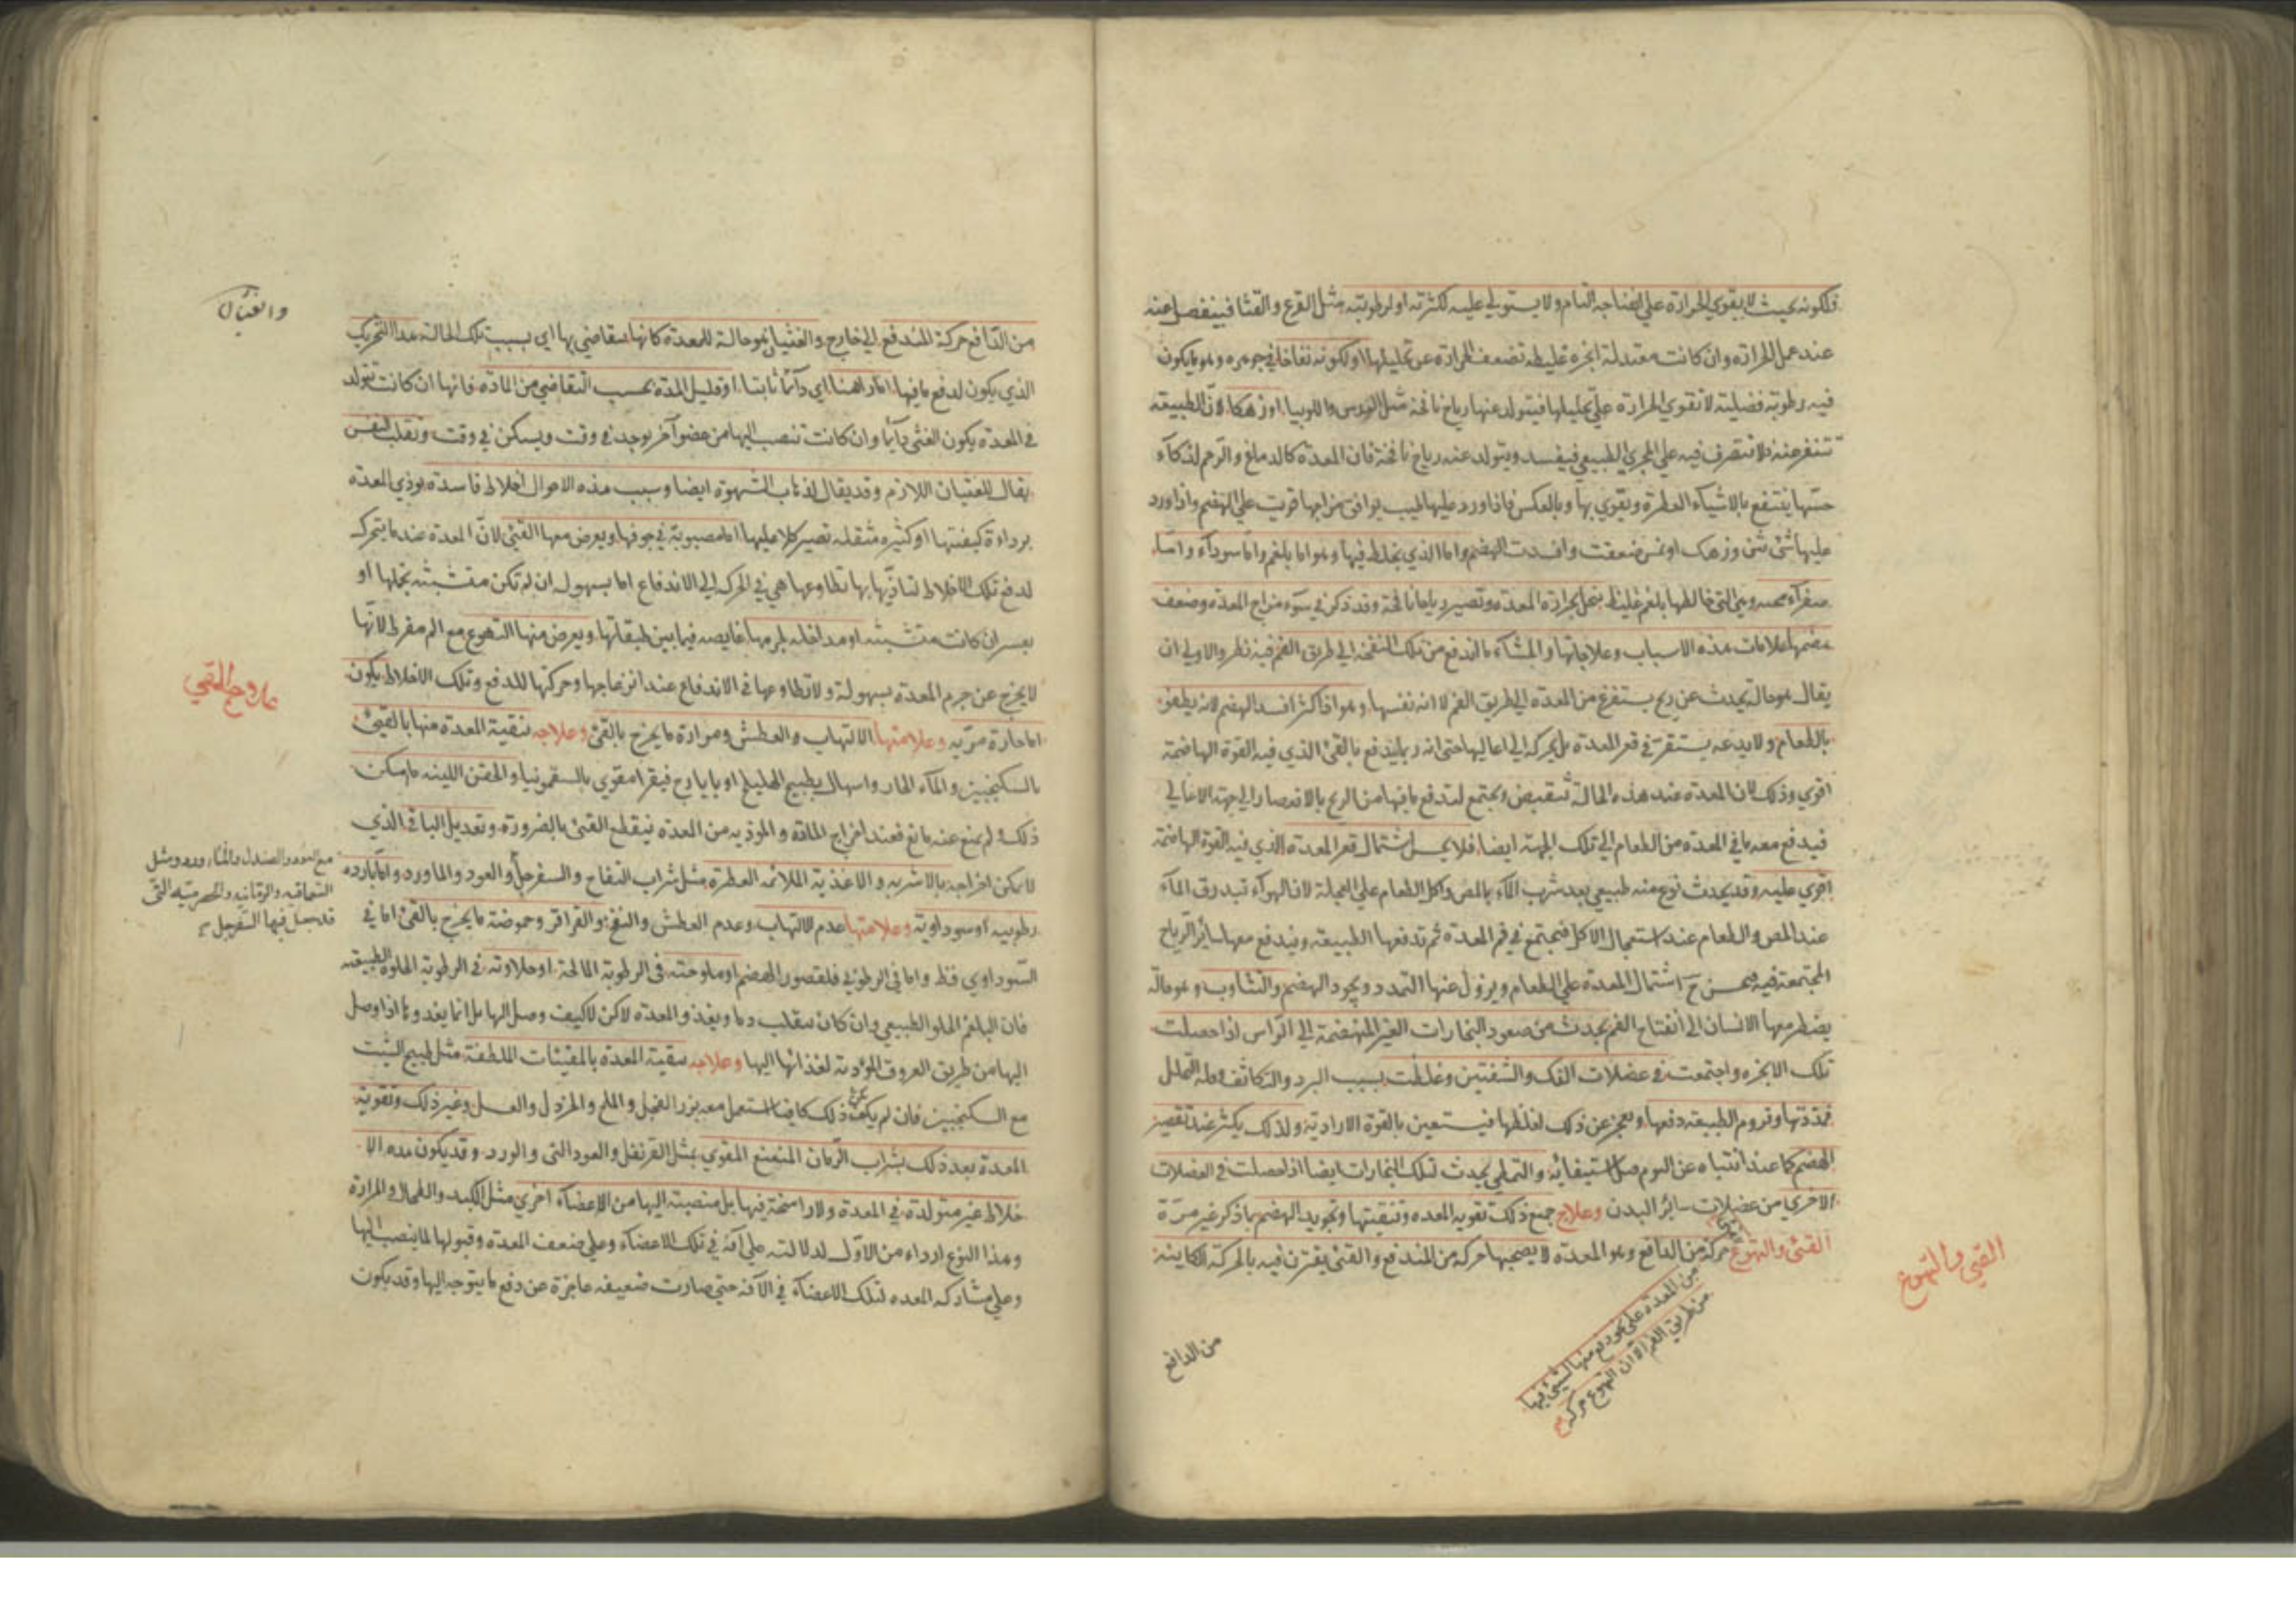 فلكونه بحيث لا يقوي الحرارة علي انضاجه التام ولا يستولي عليه لكثرته او لرطوبته مثل القرع والقثا فينفصل عنه
عند عمل الحرارة وان كانت معتدلة ابخرة غليظه تضعف الحرارة عن تحليلها او لكونه نفاخا في جوهره وهو ما يكون
فيه رطوبة فضلية لا تقوي الحرارة علي تحليلها فيتولد عنها رياح نافخة مثل العدس واللوبيا او زهكا لان الطبيعة
تتنفر عنه فلا تتصرف فيه علي المجري الطبيعي فيفسد ويتولد عنه رياح نافخة فان المعدة كالدماغ والرحم لذكآء
حسها ينتفع بالاشيآء العطرة ويقوي بها وبالعكس فاذا ورد عليها طيب يوافق مزاجها قويت علي الهضم واذا ورد
عليها شئ نتن وزهك او نمس ضعفت وافسدت الهضم واما الذي يخلط فيها وهو اما بلغم واما سودآء واما
صفرآء محيه وهي التي خالطها بلغم غليظ ينحل بحرارة المعدة وتصير رياحا نافخة وقد ذكر في سوء مزاج المعدة وضعف
هضمها علامات هذه الاسباب وعلاجاتها والجشآء ما اندفع من تلك النفخة الي طريق الفم فيه نظر والاولي ان
يقال هو حالة يحدث عن ريح يستفرغ من المعدة الي طريق الفم لا انه نفسها وهو اذا كثر افسد الهضم لانه يطفو
بالطعام ولا يدعه يستقر في قعر المعدة بل يحركه الي اعاليها حتي انه ربما يندفع بالقئ الذي فيه القوة الهاضمة
اقوي وذلك لان المعدة عند هذه الحالة تنقبض ويجتمع لتدفع ما فيها من الريح بالانعصار الي جهة الاعالي
فيدفع معه ما في المعدة من الطعام الي تلك الجهة ايضا فلا يحسن اشتمال قعر المعدة الذي فيه القوة الهاضمة
اقوي عليه وقد يحدث نوع منه طبيعي بعد شرب المآء بالمص واكل الطعام علي العجلة لان الهوآء تبدرق المآء
عند المص والطعام عند استعمال الاكل فيجتمع في قعر المعدة ثم تدفعها الطبيعة ويندفع معها سائر الرياح
المجتمعة فيه فيحسن ح اشتمال المعدة علي الطعام ويزول عنها التمدد ويجود الهضم والتثاوب وهو حالة
يضطر معها الانسان الي انفتاح الفم يحدث من صعود البخارات الغير المنهضمة الي الراس اذا حصلت
تلك الابخرة واجتمعت في عضلات الفك والشفتين وغلظت بسبب البرد والتكاثف وقلة التحلل
فمددتها وتروم الطبيعة دفعها ويعجز عن ذلك لغلظها فيستعين بالقوة الارادية ولذلك يكثر عند تقصير
الهضم كما عند انتباه عن النوم قبل استيفائه والتمطي يحدث لتلك البخارات ايضا اذا حصلت في العضلات
الاخري من عضلات سائر البدن وعلاج جميع ذلك تقوية المعدة وتنقيتها وتجويد الهضم بما ذكر غير مرة
القئ والتهوع حركة من الدافع وهو المعدة لا يصحبها حركة من المندفع والقئ يقترن فيه بالحركة الكاينة
من المعدة علي هو دفع منها لشئ فيها
من طريق الفم الا ان التهوع حركة
القئ والتهوع
من الدافع
والغثيان
من الدافع حركة المندفع الي خارج والغثيان هو حالة للمعدة كانها يتقاضي بها اي بسبب تلك الحالة هذا التحريك
الذي يكون لدفع ما فيها اما راهنا اي دآئما ثابتا او قليل المدة بحسب التقاضي من المادة فانها ان كانت تتولد
في المعدة يكون الغثي دآئما وان كانت تنصب اليها من عضو آخر يوجد في وقت ويسكن في وقت وتقلب النفس
يقال للغثيان اللازم وقد يقال لذهاب الشهوة ايضا وسبب هذه الاحوال اخلاط فاسدة يوذي المعدة
برداءة كيفيتها او كثيره مثقلة تصير كلا عليها اما مصبوبة في جوفها ويعرض معها القئ لان المعدة عند ما يتحرك
لدفع تلك الاخلاط لتاذيها بها تطاوعها هي في الحركة الي الاندفاع اما بسهولة ان لم تكن متشبثه بخملها او
بعسر ان كانت متشبثه او مداخلة لجرمها غايصه فيما بين طبقاتها ويعرض منها التهوع مع الم مفرط لانها
لا يخرج عن جرم المعدة بسهولة ولا تطاوعها في الاندفاع عند انزعاجها وحركتها للدفع وتلك الاخلاط يكون
اما حارة مرية وعلامتها الالتهاب والعطش ومرارة ما يخرج بالقئ وعلاجه تنقية المعدة منها بالقيئ
بالسكنجبين والمآء الحار واسهال بطبيخ الهليلج او بايارج فيقرا مقوي بالسقمونيا والحقن اللينه ما يمكن
ذلك ولم يمنع عنه مانع فعند اخراج المادة الموذيه من المعدة ينقطع القئ بالضرورة وتعديل الباقي الذي
لا يمكن اخراجه بالاشربه والاغذية الملائمه العطرة مثل شراب التفاح والسفرجل والعود والماورد واما بارده
رطوبيه او سوداوية وعلامتها عدم الالتهاب وعدم العطش والنفخ والقراقر وحموضة ما يخرج بالقئ اما في
السوداوي فقط واما في الرطوبي فلقصور الهضم او ملوحته في الرطوبة المالحة او حلاوته في الرطوبة الحلوة الطبيعيه
فان البلغم الحلو الطبيعي وان كان ينقلب دما ويغذو المعدة لاكن لا كيف وصل اليها بل انما يغدوها اذا وصل
اليها من طريق العروق المؤدية لغذائها اليها وعلاجه تنقية المعدة بالمقيئات الملطفة مثل طبيخ الشبت
مع السكنجبين فان لم يكف ذلك كافيا استعمل معه بزر الفجل والملح والخردل والعسل وغير ذلك وتقوية
المعدة بعد ذلك بشراب الرمان المنعنع المقوي بمثل القرنفل والعود الني والورد وقد يكون هذه الا
خلاط غير متولدة في المعدة ولا راسخة فيها بل منصبة اليها من الاعضآء اخري مثل الكبد والطحال والمرارة
وهذا النوع ارداء من الاول لدلالته علي آفة في تلك الاعضآء وعلي ضعف المعدة وقبولها لما ينصب اليها
وعلي مشاركه المعده لتلك الاعضآء في الآفة حتي صارت ضعيفه عاجزة عن دفع ما يتوجه اليها وقد يكون
علاج القي
مع الورد والصندل والماورد ومثل
السماقيه والرمانيه والحصرميه التي
قد حصل فيها السفرجل